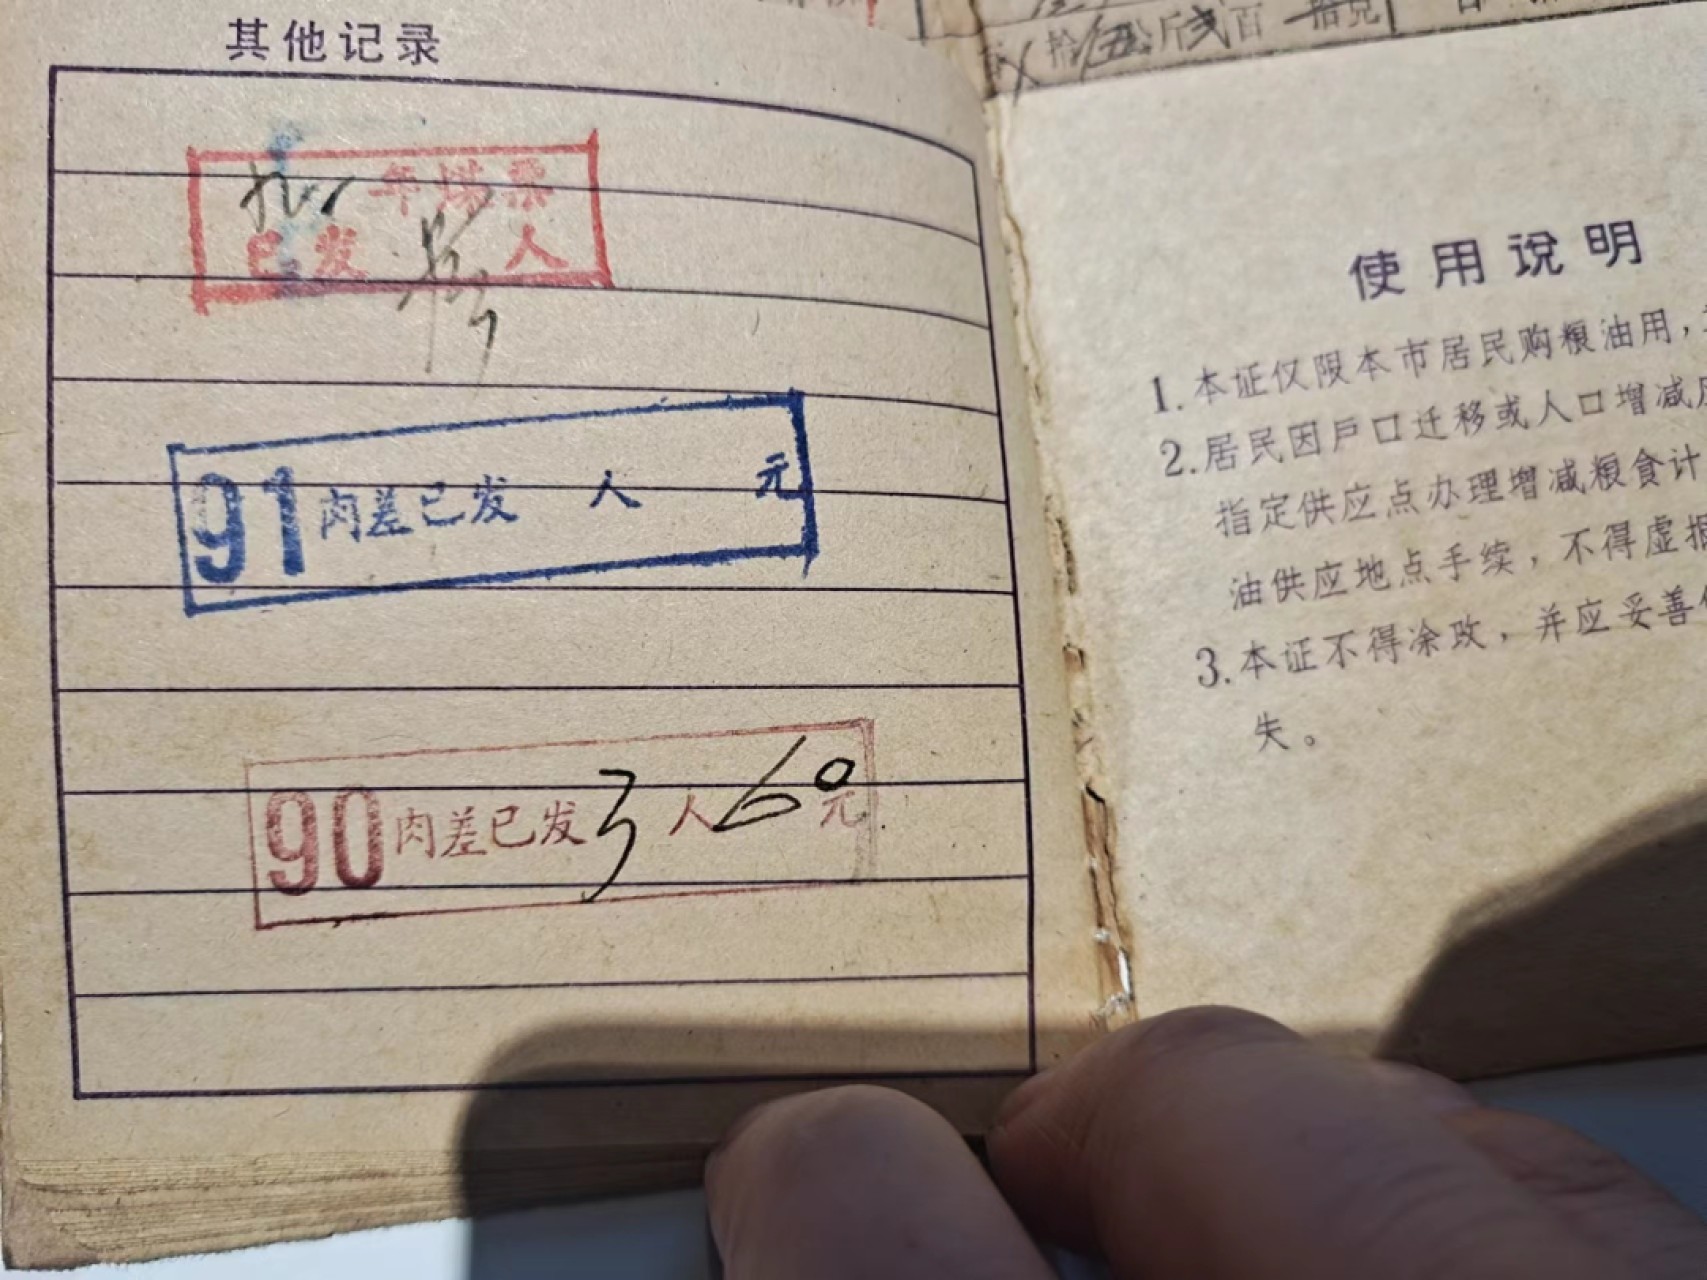 其他记录
年煤票
已发 人
91肉差已发 人 元
90肉差已发3人60元
拾伍公斤贰百一拾克
使用说明
1.本证仅限本市居民购粮油用，
2.居民因户口迁移或人口增减
指定供应点办理增减粮食计
油供应地点手续，不得虚报
3.本证不得涂改，并应妥善
失。